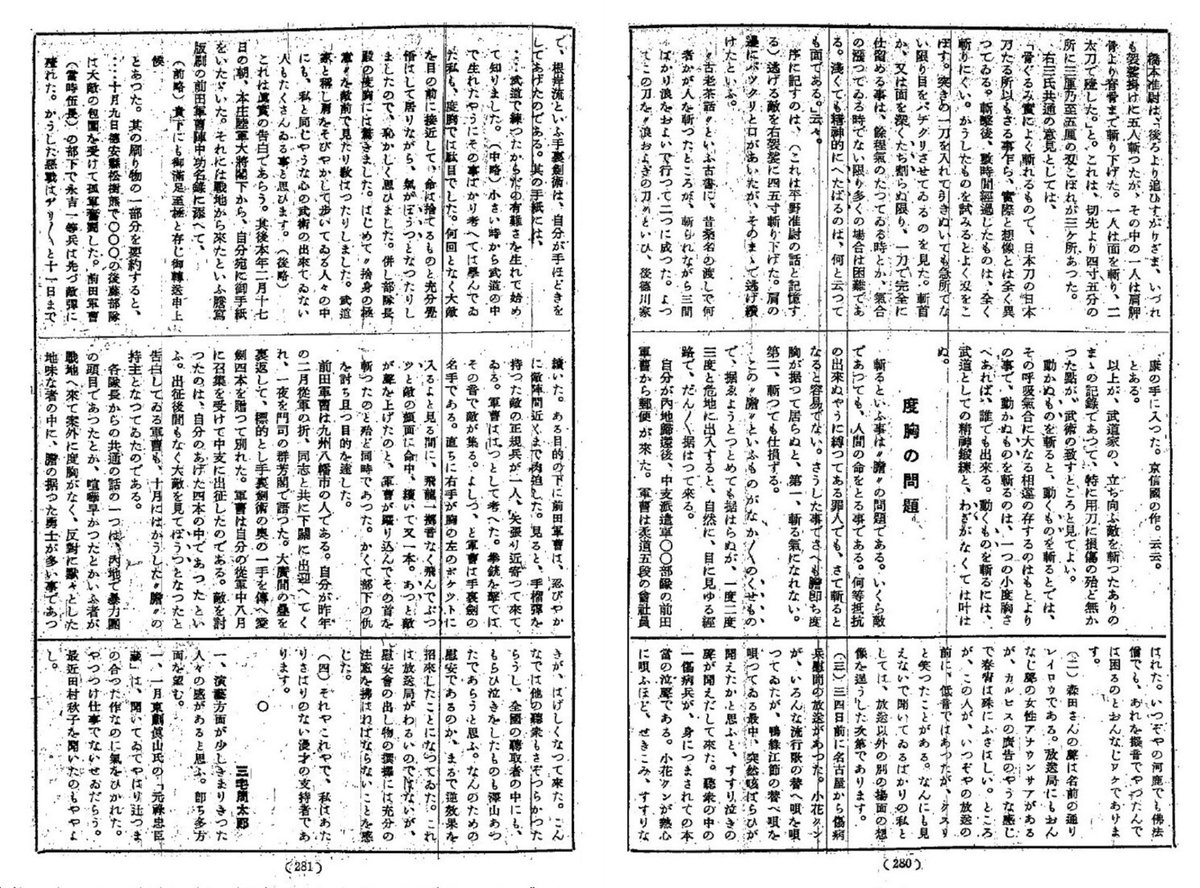 橋本准尉は、後ろより追ひすがりざま、いづれ
も袈裟掛けに五人斬つたが、その中の一人は肩胛
骨より脊骨まで斬り下げた。一人は面を斬り、二
太刀で殪した。と。これは、切先より四寸五分の
所に三厘乃至五厘の刃こぼれが三ケ所あつた。
右三氏共通の意見としては、
「骨ぐるみ実によく斬れるもので、日本刀の日本
刀たる所以もさる事乍ら、実際と想像とは全く異
つてゐる。斬撃後、数時間経過したものは、全く
斬りにくい。かうしたものを試みるとよく刃をこ
ぼす。突きの一刀を入れて引きぬいても急所でな
い限り目をパチクリさせてゐるのを見た。斬首
か、又は面を深くたち割らぬ限り、一刀で完全に
仕留める事は、余程気のたつてゐる時とか、気合
の漲つてゐる時でない限り多くの場合は困難であ
る。浅くても精神的にへたばるのは、何と云つて
も面である。」云々。
序に記すのは、(これは平野准尉の話と記憶す
る)逃げる敵を右袈裟に四五寸斬り下げた。肩の
辺にパツクリと口があいたが、そのまゝで逃げ続
けたといふ。
〃古老茶話〃といふ古書に、昔桑名の渡しで何
者かが人を斬つたところが、斬られながら三間
ばかり浪をおよいで行つて二つに成つた。よつ
てこの刀を〃浪およぎの刀〃といひ、後徳川家
康の手に入つた。京信国の作。云云。
とある。
以上が、武道家の、立ち向ふ敵を斬つたありの
まゝの記録であつて、特に用刀に損傷の殆ど無か
つた点が、武術の致すところと見てよい。
動かぬものを斬ると、動くものを斬るとでは、
その呼吸気合に大なる相違の存するのはもとより
の事で、動かぬものを斬るのは、一つの小度胸さ
へあれば、誰でも出来る。動くものを斬るには、
武道としての精神鍛練と、わざがなくては叶は
ぬ。
度胸の問題
斬るといふ事は〃胆〃の問題である。いくら敵
であつても、人間の命をとる事である。何等抵抗
の出来ぬやうに縛つてある罪人でも、さて斬ると
なると容易でない。さうした事でさへも胆即ち度
胸が据つて居らぬと、第一、斬る気になれない。
第二、斬つても仕損ずる。
この〃胆〃といふものがなか〱のくせもの
で、据ゑようとつとめても据はらぬが、一度二度
三度と危地に出入すると、自然に、目に見ゆる経
路で、だん〱据はつて来る。
自分が内地帰還後、中支派遣軍〇〇部隊の前田
軍曹から郵便が来た。軍曹は柔道五段の会社員
ばれた。いつぞやの河鹿でも仏法
僧でも、あれを擬音でやつたんで
は困るのとおんなじワケでありま
す。
(二)森田さんの声は名前の通り
レイロウである。放送局にもおん
なじ声の女性アナウンサアがある
が、カルピスの広告のやうな感じ
で春宵は殊にふさはしい。ところ
が、この人が、いつぞやの放送の
前に、低音ではあつたが、クスリ
と笑つたことがある。なんにも見
えないで聞いてゐるばかりの私と
しては、放送以外の別の場面の想
像を逞うした次第であります。
(三)三四日前に名古屋から傷病
兵慰問の放送があつた。小花クン
が、いろんな流行歌の替へ唄を唄
つてゐたが、鴨緑江節の替へ唄を
唄つてゐる最中、突然咳ばらひが
聞えたかと思ふと、すすり泣きの
声が聞えだして来た。聴衆の中の
一傷病兵が、身につまされての本
当の泣声である。小花クンが熱心
に唄ふほど、せきこみ、すすりな
(280)
で、根岸流といふ手裏剣術は、自分が手ほどきを
してあげたのである。其の手紙には、
……武道で練つたからだの有難さを生れて始め
て知りました。(中略)小さい時から武道の中
で生れたやうにその事ばかり考へては学んでゐ
た私も、度胸では駄目でした。何回となく大敵
を目の前に接近して、命は捨てるものと充分覚
悟はして居りながら、気がぼうつとなつたりし
ましたので、恥かしく思ひました。併し部隊長
殿の度胸には驚きました。はじめて〃捨身の極
意〃を敵前で見たり教はつたりしました。武道
家と称し肩をそびやかして歩いてゐる人々の中
にも、私と同じやうな心の武術の出来てゐない
人もたくさんゐる事と思ひます。(後略)
これは真実の告白であらう。其後本年二月十七
日の朝、本庄陸軍大将閣下から、自分宛に御手紙
をいただいた。それには戦地から来たといふ謄写
版刷の前田軍曹陣中功名録に添へて、
(前略、貴下にも御満足至極と存じ御転送申上
候
とあつた。其の刷り物の一部分を要約すると、
……十月九日徳安県松樹熊で〇〇〇の後藤部隊
は大敵の包囲を受けて孤軍奮闘した。前田軍曹
(当時伍長)の部下で永吉一等兵は先づ敵弾に
殪れた。かうした悪戦はヂリ〱と十一日まで
続いた。ある目的の下に前田軍曹は、忍びやか
に敵陣間近くまで肉迫した。見ると、手榴弾を
持つた敵の正規兵が一人、矢張り近寄つて来て
ゐる。軍曹ははつとして考へた。拳銃を撃てば
その音で敵が集る。よしつ、と軍曹は手裏剣の
名手である。直ちに右手が胸の左のポケツトに
入るよと見る間に、飛龍一擲音なく飛んでぷつ
ツと敵の顔面に命中、続いて又一本。あつと敵
が声を上げたのと、軍曹が躍り込んでその首を
斬つたのと殆ど同時であつた。かくて部下の仇
を討ち且つ目的を達した。
前田軍曹は九州八幡市の人である。自分が昨年
の二月従軍の折、同志と共に下関に出迎へてく
れ、一夜を門司の群芳閣で語つた。大広間の畳を
裏返して、標的とし手裏剣術の奥の一手を伝へ愛
剣四本を贈つて別れた。軍曹は自分の従軍中八月
に召集を受けて中支に出征したのである。敵を討
つたのは、自分のあげた四本の中であつたとい
ふ。出征後間もなく大敵を見てぼうつとなつたと
告白してゐる軍曹も、十月にはかうした〃胆〃の
持主となつてゐたのである。
各隊長からの共通の話の一つは、内地で暴力団
の頭目であつたとか、喧嘩早かつたとかいふ者が
戦地へ来て案外に度胸がなく、反対に黙々とした
地味な者の中に、胆の据つた勇士が多い事であつ
きが、はげしくなつて来た。こん
なでは他の聴衆もさぞつらかつた
らうし、全国の聴取者の中にも、
もらひ泣きをしたものも沢山あつ
たであらうと思ふ。なんのための
慰安であるのか、まるで逆効果を
招来したことになつてゐた。これ
は放送局がわるいのではないが、
慰安会の出し物の撰択には充分の
注意を払はねばならないことを感
じた。
(四)それやこれやで、私はあた
りさはりのない漫才の支持者であ
ります。
〇
三宅周太郎
一、演芸方面が少しきまりきつた
人々の感があると思ふ。即ち多方
面を望む。
一、一月東劇真山氏の「元禄忠臣
蔵」は、聞いてゐてやはり辻つま
の合つた作なのに気をひかれた。
やつつけ仕事でないせゐだらう。
最近田村秋子を聞いたのもやゝよ
し。
(281)